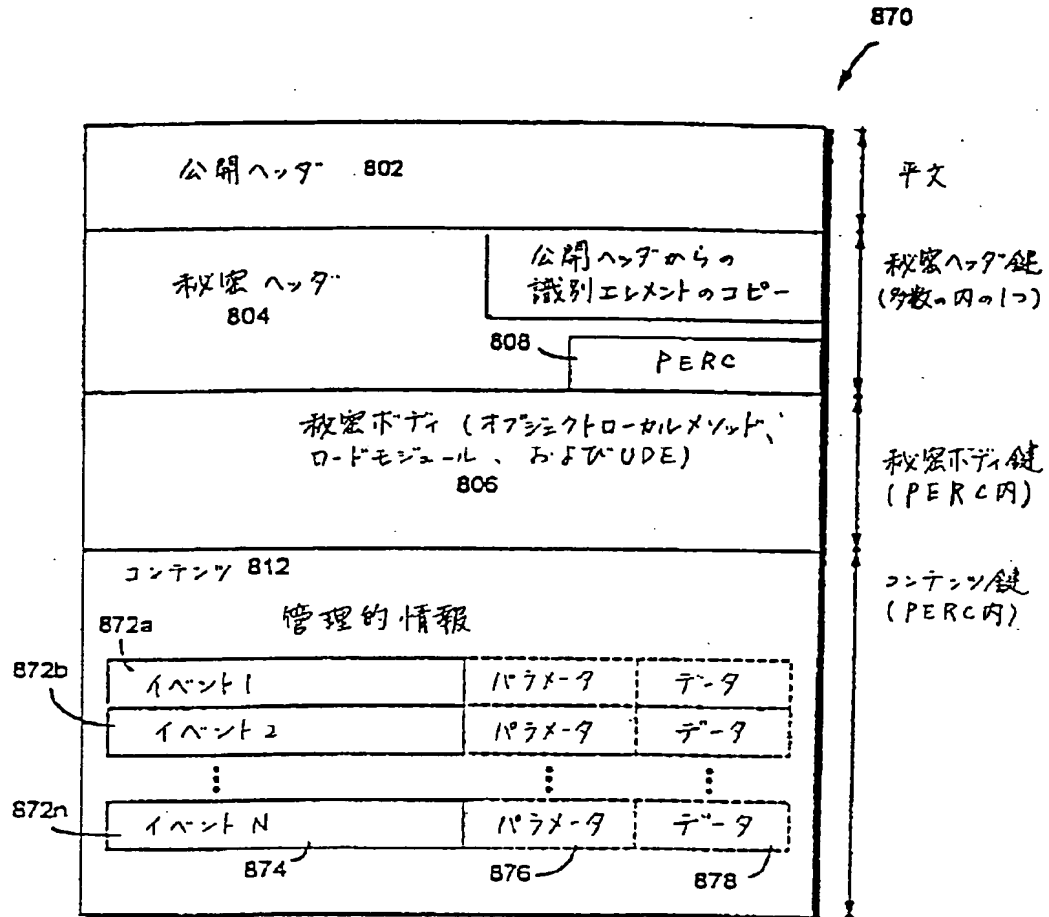 870
公開ヘッダ 802
平文
秘密ヘッダ
804
公開ヘッダからの
識別エレメントのコピー
808
PERC
秘密ヘッダ鍵
(多数の内の1つ)
秘密ボディ (オブジェクトローカルメソッド、
ロードモジュール、およびUDE)
806
秘密ボディ鍵
(PERC内)
コンテンツ 812
コンテンツ鍵
(PERC内)
管理的情報
872a
イベント1 パラメータ データ
872b
イベント2 パラメータ データ
872n
イベントN パラメータ データ
874
876
878